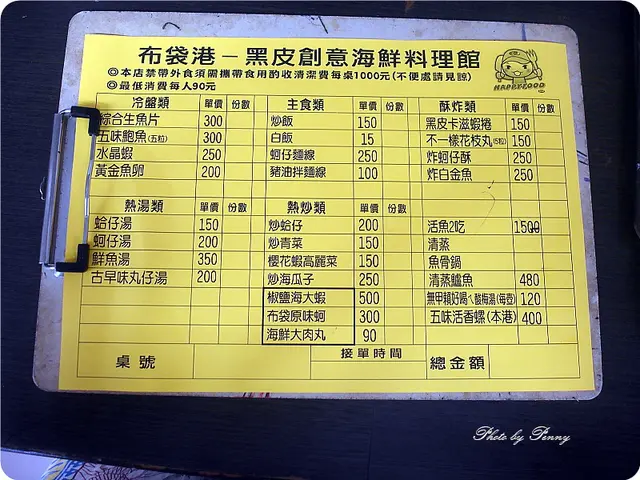 布袋港－黑皮創意海鮮料理館
◎本店禁帶外食須需攜帶食用酌收清潔費每桌1000元(不便處請見諒)
◎最低消費每人90元
HAPPYFOOD
冷盤類 單價 份數 主食類 單價 份數 酥炸類 單價 份數
綜合生魚片 300 炒飯 150 黑皮卡滋蝦捲 150
五味鮑魚(五粒) 300 白飯 15 不一樣花枝丸(5粒) 150
水晶蝦 250 蚵仔麵線 250 炸蚵仔酥 250
黃金魚卵 200 豬油拌麵線 100 炸白金魚 250
熱湯類 單價 份數 熱炒類 單價 份數
蛤仔湯 150 炒蛤仔 200 活魚2吃 1500
蚵仔湯 200 炒青菜 150 清蒸
鮮魚湯 350 櫻花蝦高麗菜 150 魚骨鍋
古早味丸仔湯 200 炒海瓜子 250 清蒸鱸魚 480
椒鹽海大蝦 500 無甲頓好喝ㄟ酸梅湯(每壺) 120
布袋原味蚵 300 五味活香螺(本港) 400
海鮮大肉丸 90
桌號 接單時間 總金額
Photo by Penny